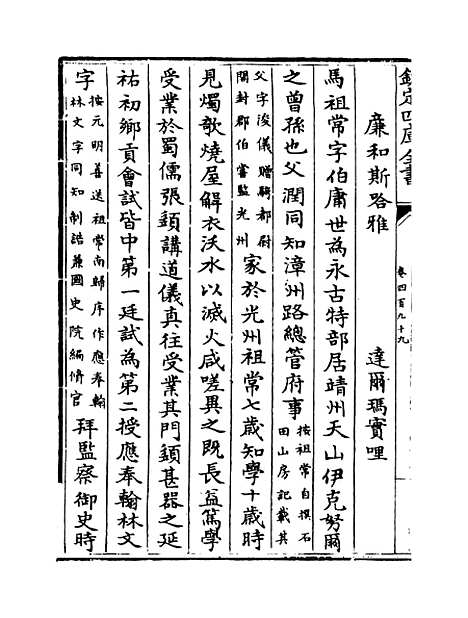 欽定四庫全書
卷四百九十九
廉和斯路雅　達爾瑪實哩
馬祖常字伯庸世為永古特部居靖州天山伊克努爾
之曾孫也父潤同知漳州路總管府事按祖常自撰石田山房記載其
父字浚儀贈騎都尉開封郡伯嘗監光州家於光州祖常七歲知學十歲時
見燭欹燒屋解衣沃水以滅火咸嗟異之既長益篤學
受業於蜀儒張䇓講道儀真往受業其門䇓甚器之延
祐初鄉貢會試皆中第一廷試為第二授應奉翰林文
字按元明善送祖常南歸序作應奉翰林文字同知制誥兼國史院編脩官拜監察御史時